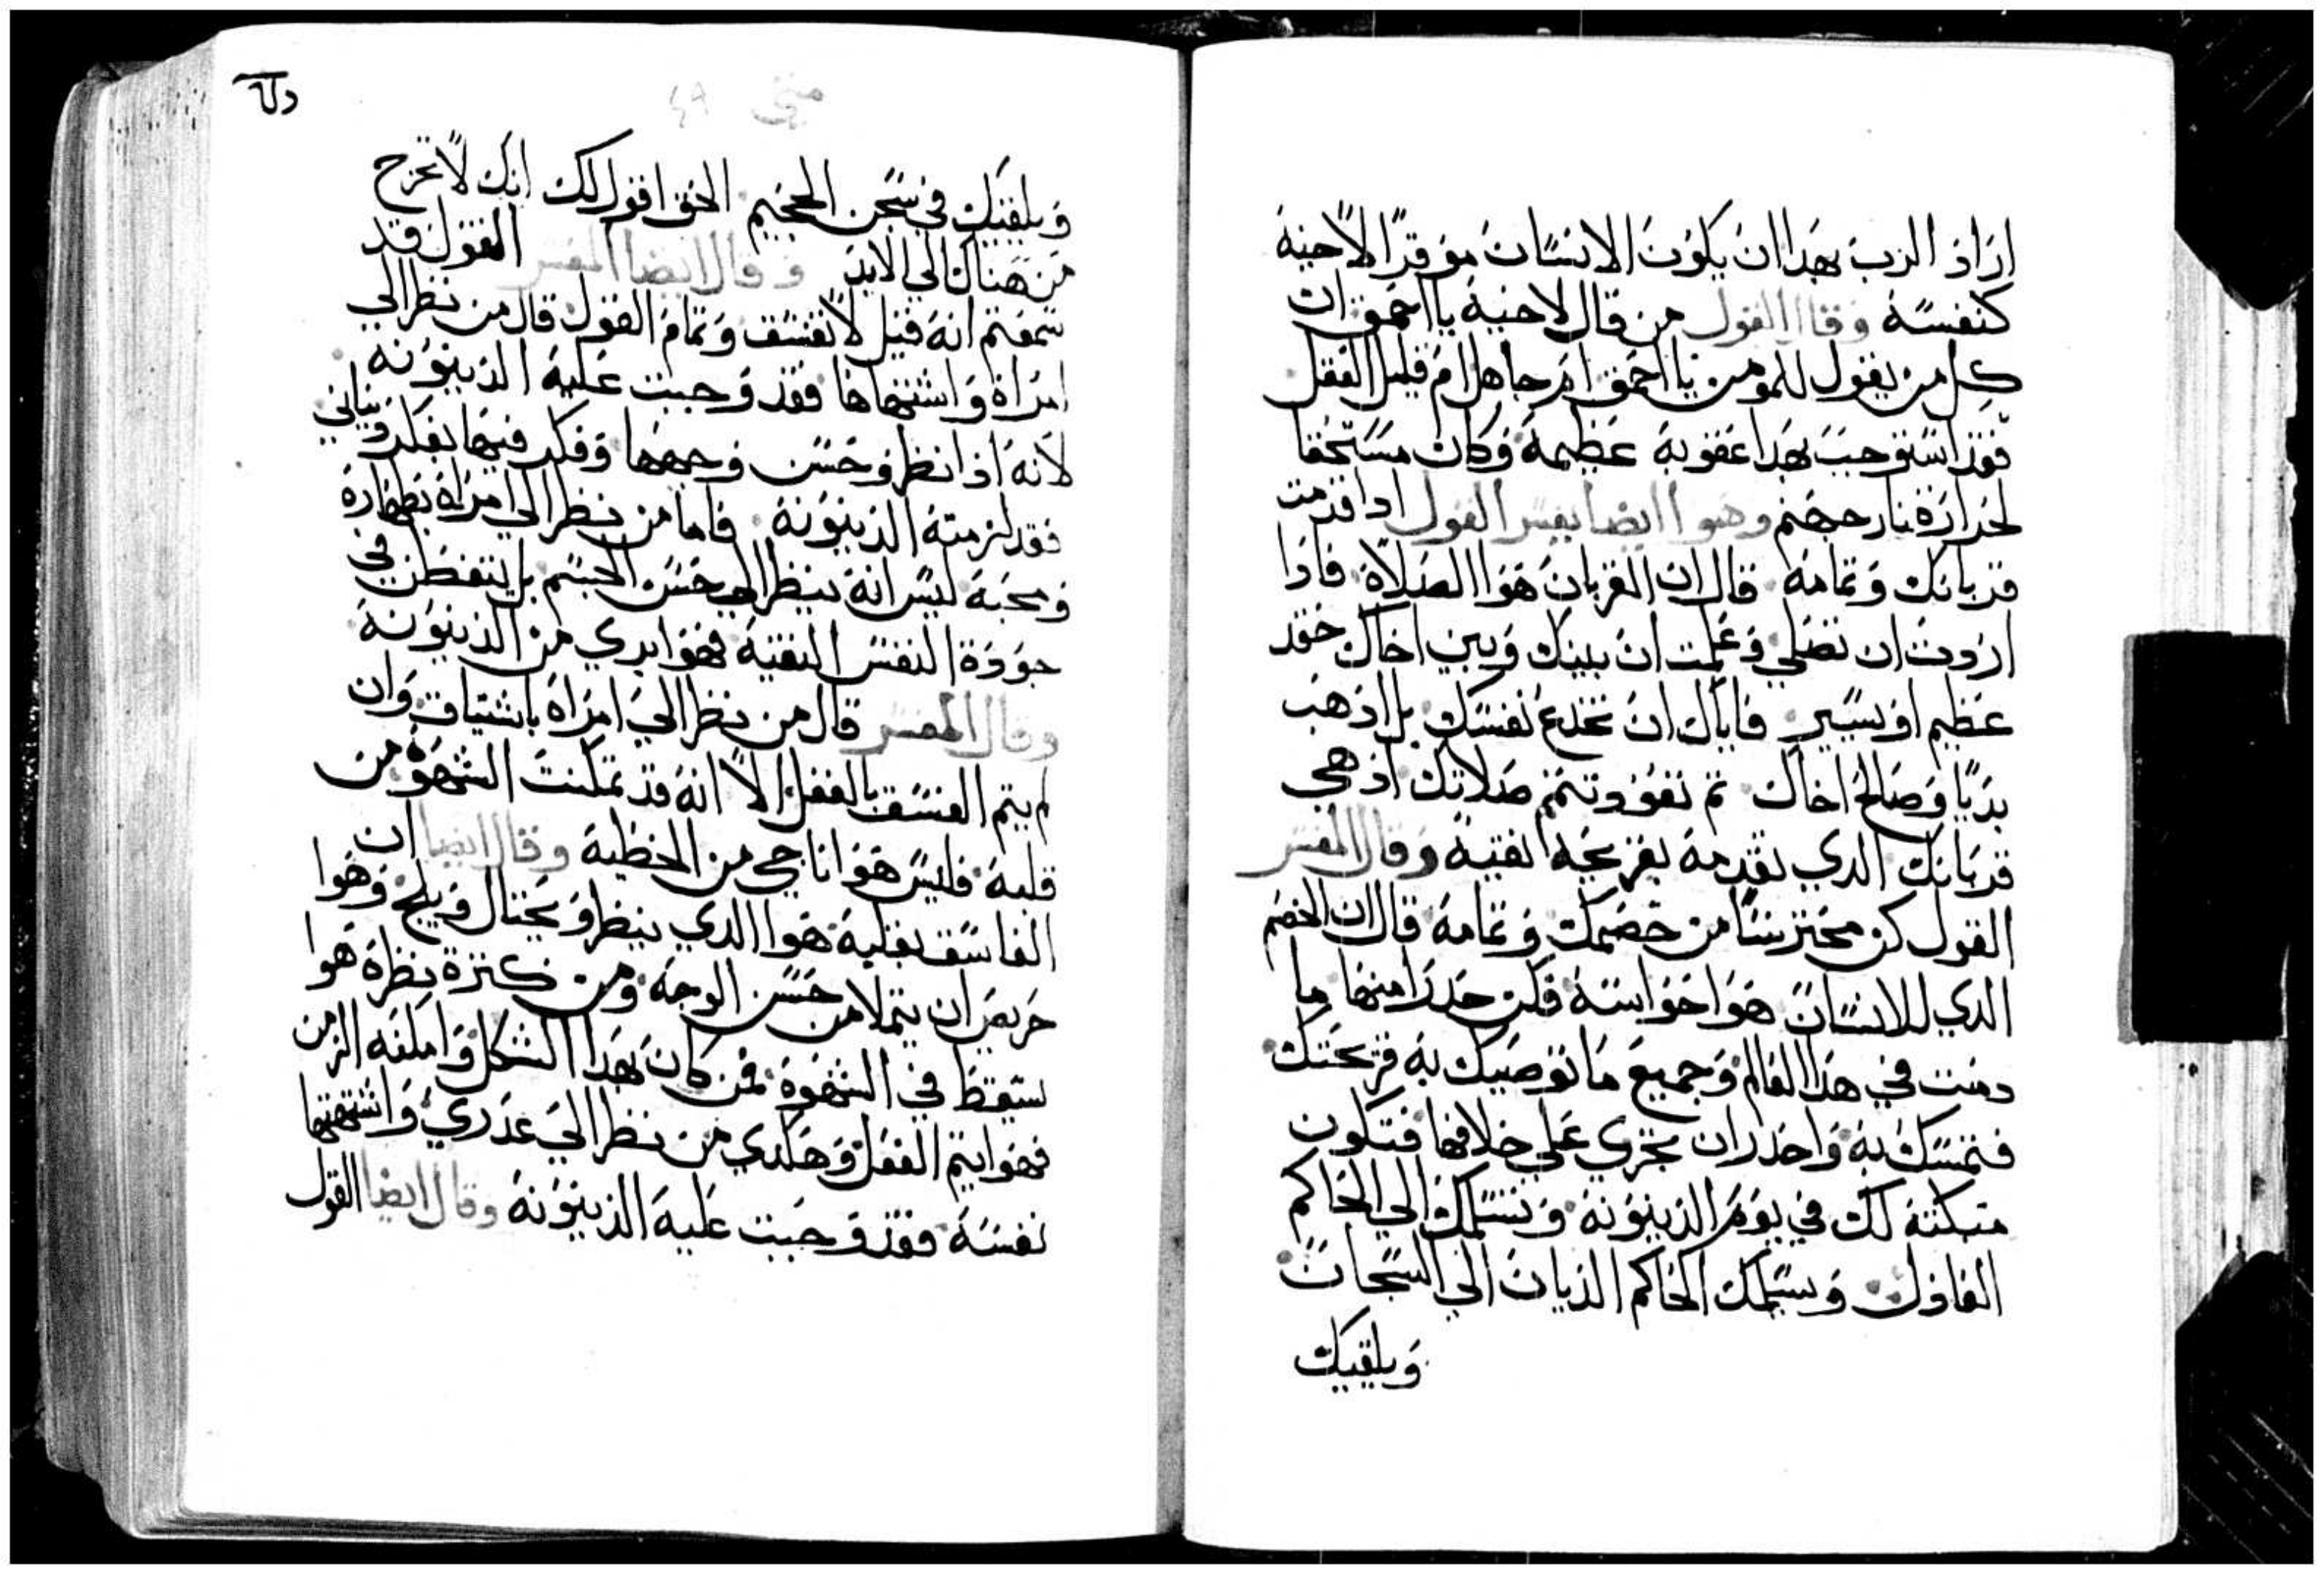 اراد الرب بهدا ان يكون الانسان موقرًا لاخيه
كنفسه وقال القول من قال لاخيه يا احمق ان
كل من يقول للمومن يا احمق ام جاهل ام قليل العقل
فقد استوجب بهدا عقوبة عظيمة وكان مستحقا
لحرارة نار جهنم وهوا ايضا يفسر القول ادا قدمت
قربانك وتمامه قال ان القربان هوا الصلاة فادا
اردت ان تصلي وعلمت ان بينك وبين اخاك حقد
عظيم او يسير فاياك ان تخدع نفسك بل ادهب
بديًا وصالح اخاك تم تقف وتتمم صلاتك اد هي
قربانك الدي تقدمه بقريحه نقية وقال المفسر
القول كن محترسًا من خصمك وتمامه قال ان الخصم
الدي للانسان هوا حواسه فكن حدرا منها ما
دمت في هدا العالم وجميع ما توصيك به قريحتك
فتمسك به واحدر ان تجري علي خلافها فتكون
مبكتة لك في يوم الدينونه وتسلمك الي الحاكم
العادل ويسلمك الحاكم الديان الي السجان
ويلقيك
متي ٤٩
ويلقيك في سجن الجحيم الحق اقول لك انك لا تخرج
من هناك الي الابد وقال ايضا المفسر القول قد
سمعتم انه قيل لا تفسق وتمام القول قال من نظر الي
امراة واشتهاها فقد وجبت عليه الدينونه
لانه ادا نظر وحسن وجهها وفكر فيما يفكر وياني
فقد لزمته الدينونة فاما من نظر الي امراة بطهارة
ومحبة ليس انه ينظر الي حسن الجسم بل يتفطن في
جودة النفس النقية فهوا بري من الدينونة
وقال المفسر قال من نظر الي امراة باشتياق وان
لم يتم الفسق بالفعل الا انه قد تمكنت الشهوة من
قلبه فليس هوا ناجي من الخطية وقال ايضا ان
الفاسق بقلبه هوا الدي ينظر ويحتال ويلح وهوا
حريص ان يتملا من حسن الوجه ومن كترة نظره هوا
يسقط في الشهوة فمن كان بهدا الشكل وامكنه الزمن
فهوا يتم الفعل وهكدي من نظر الي عدري واشتهتها
نفسه فقد وجبت عليه الدينونة وقال ايضا القول